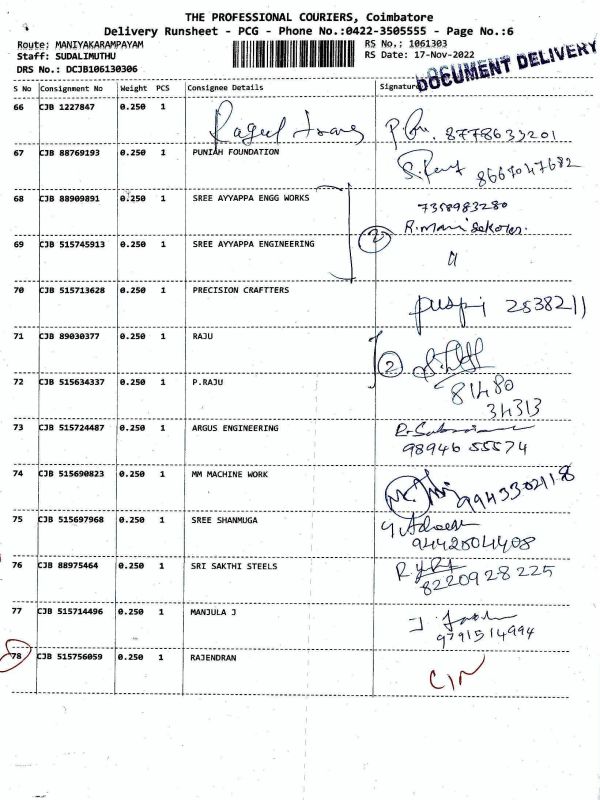 THE PROFESSIONAL COURIERS, Coimbatore
Delivery Runsheet - PCG - Phone No.:0422-3505555 - Page No.:6
Route: MANIYAKARAMPAYAM RS No.: 1061303
Staff: SUDALIMUTHU RS Date: 17-Nov-2022
DRS No.: DCJB106130306
DOCUMENT DELIVERY
S No Consignment No Weight PCS Consignee Details Signature
66 CJB 1227847 0.250 1 8778633201
67 CJB 88769193 0.250 1 PUNIAH FOUNDATION 8667047682
68 CJB 88909891 0.250 1 SREE AYYAPPA ENGG WORKS 7358983280
2
69 CJB 515745913 0.250 1 SREE AYYAPPA ENGINEERING
70 CJB 515713628 0.250 1 PRECISION CRAFTTERS 2538211
71 CJB 89030377 0.250 1 RAJU 2
72 CJB 515634337 0.250 1 P.RAJU 81480
34313
73 CJB 515724487 0.250 1 ARGUS ENGINEERING
98946 55574
74 CJB 515690823 0.250 1 MM MACHINE WORK 9943302118
75 CJB 515697968 0.250 1 SREE SHANMUGA
9442504408
76 CJB 88975464 0.250 1 SRI SAKTHI STEELS
8220928225
77 CJB 515714496 0.250 1 MANJULA J
9791514994
78 CJB 515756059 0.250 1 RAJENDRAN
C/N